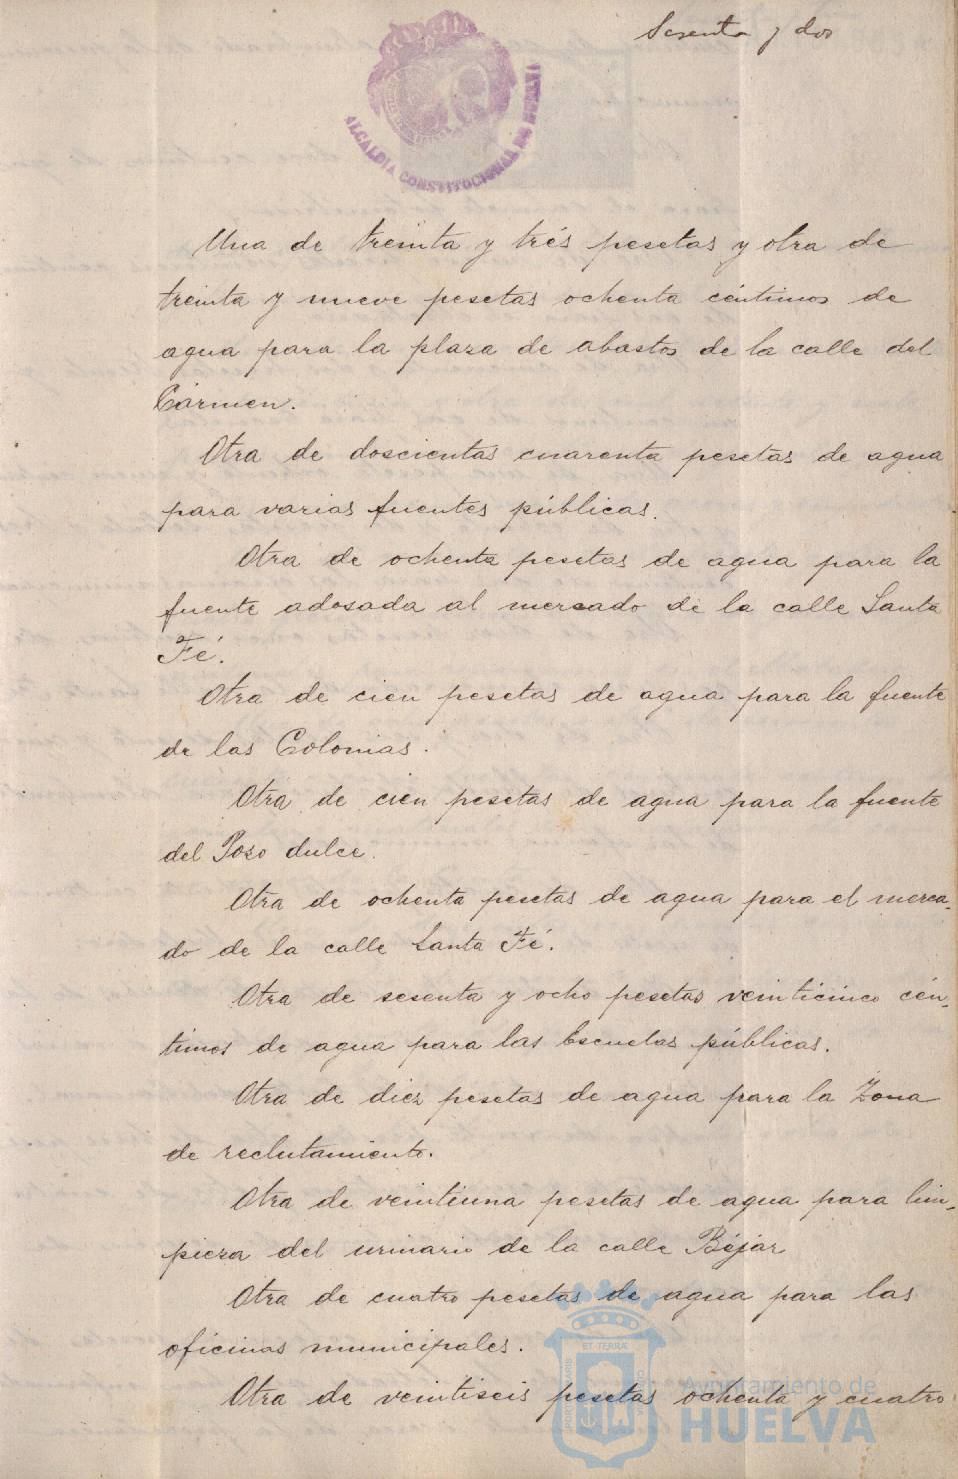 Sesenta y dos
ALCALDIA CONSTITUCIONAL DE HUELVA
Una de treinta y trés pesetas y otra de
treinta y nueve pesetas ochenta céntimos de
agua para la plaza de abastos de la calle del
Cármen.
Otra de doscientas cuarenta pesetas de agua
para varias fuentes públicas.
Otra de ochenta pesetas de agua para la
fuente adosada al mercado de la calle Santa
Fé.
Otra de cien pesetas de agua para la fuente
de las Colonias.
Otra de cien pesetas de agua para la fuente
del Pozo dulce.
Otra de ochenta pesetas de agua para el merca-
do de la calle Santa Fé.
Otra de sesenta y ocho pesetas veinticinco cén-
timos de agua para las Escuelas públicas.
Otra de diez pesetas de agua para la Zona
de reclutamiento.
Otra de veintiuna pesetas de agua para lim-
pieza del urinario de la calle Béjar
Otra de cuatro pesetas de agua para las
oficinas municipales.
Otra de veintiseis pesetas ochenta y cuatro
ET TERRA
Ayuntamiento de
HUELVA